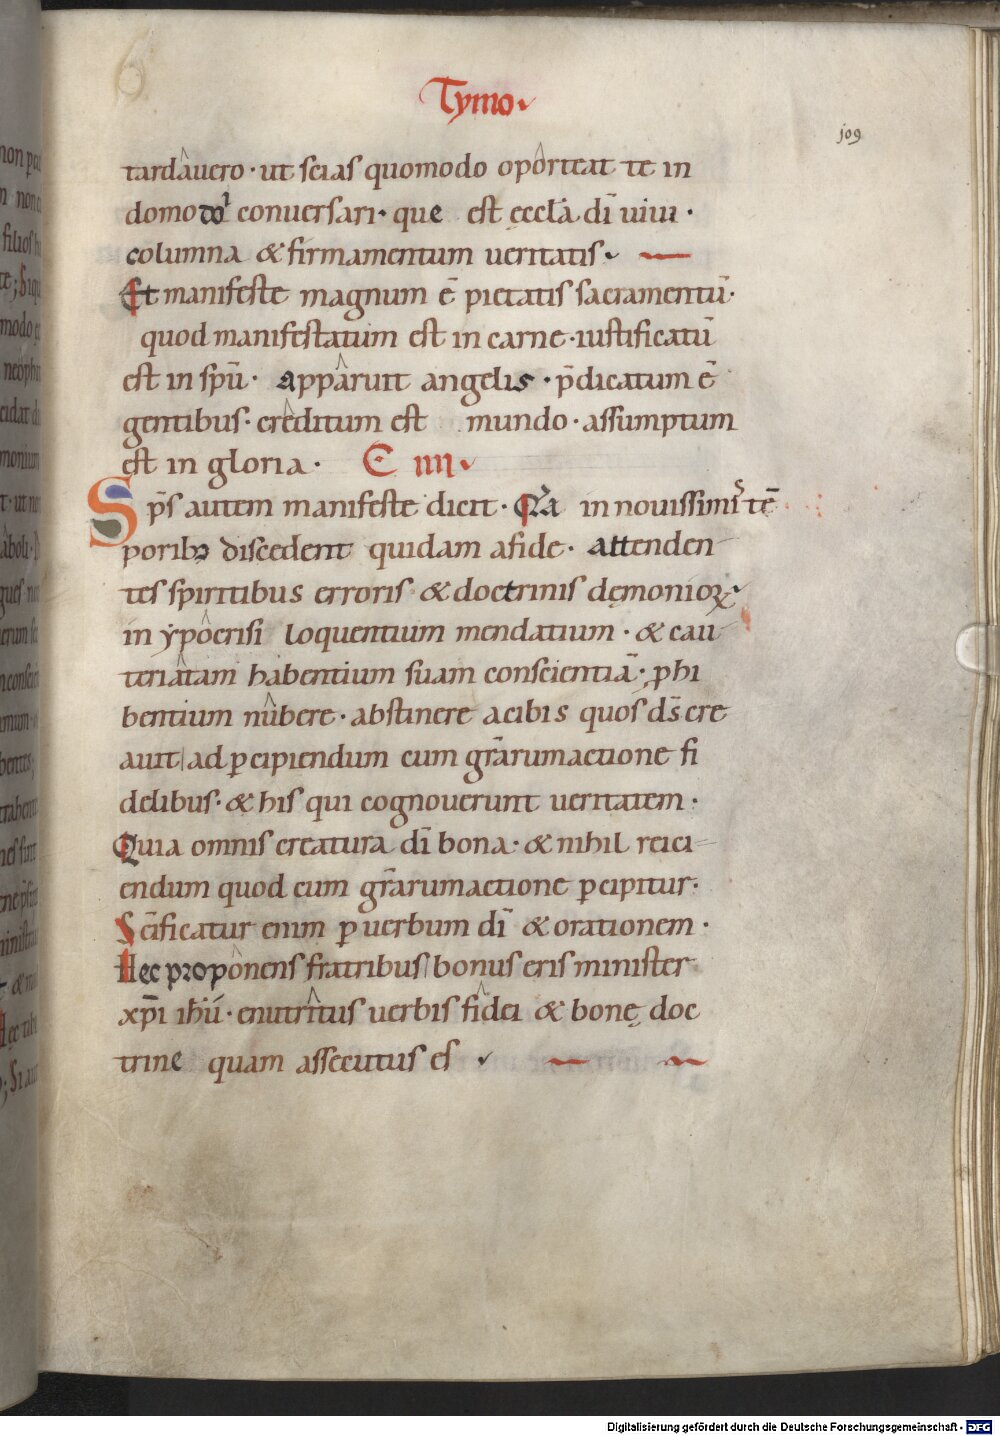 Tymo
109
tardauero · ut scias quomodo oporteat te in
domo dī conuersari · que est ęccl̄a dī uiui ·
columna & firmamentum ueritatis
Et manifeste magnum ē pietatis sacramentū ·
quod manifestatum est in carne · iustificatū
est in spū · apparuit angelis · p̄dicatum ē
gentibus · creditum est mundo · assumptum
est in gloria · C IIII
Sps̄ autem manifeste dicit · Qa in nouissimis tē
poribꝫ discedent quidam afide · attenden
tes spiritibus erroris & doctrinis dęmonioꝝ
in ypocrisi loquentium mendatium · & cau
teriatam habentium suam conscientiā · ꝓhi
bentium nubere · abstinere acibis quos ds̄ cre
auit ad ꝑcipiendum cum gr̄arumactione fi
delibus · & his qui cognouerunt ueritatem ·
Quia omnis creatura dī bona · & nihil reici
endum quod cum gr̄arumactione ꝑcipitur ·
Sc̄ificatur enim ꝑ uerbum dī & orationem ·
Hec proponens fratribus bonus eris minister
xp̄i ih̄ū · enutritus uerbis fidei & bonę doc
trine quam assecutus es
Digitalisierung gefördert durch die Deutsche Forschungsgemeinschaft - DFG